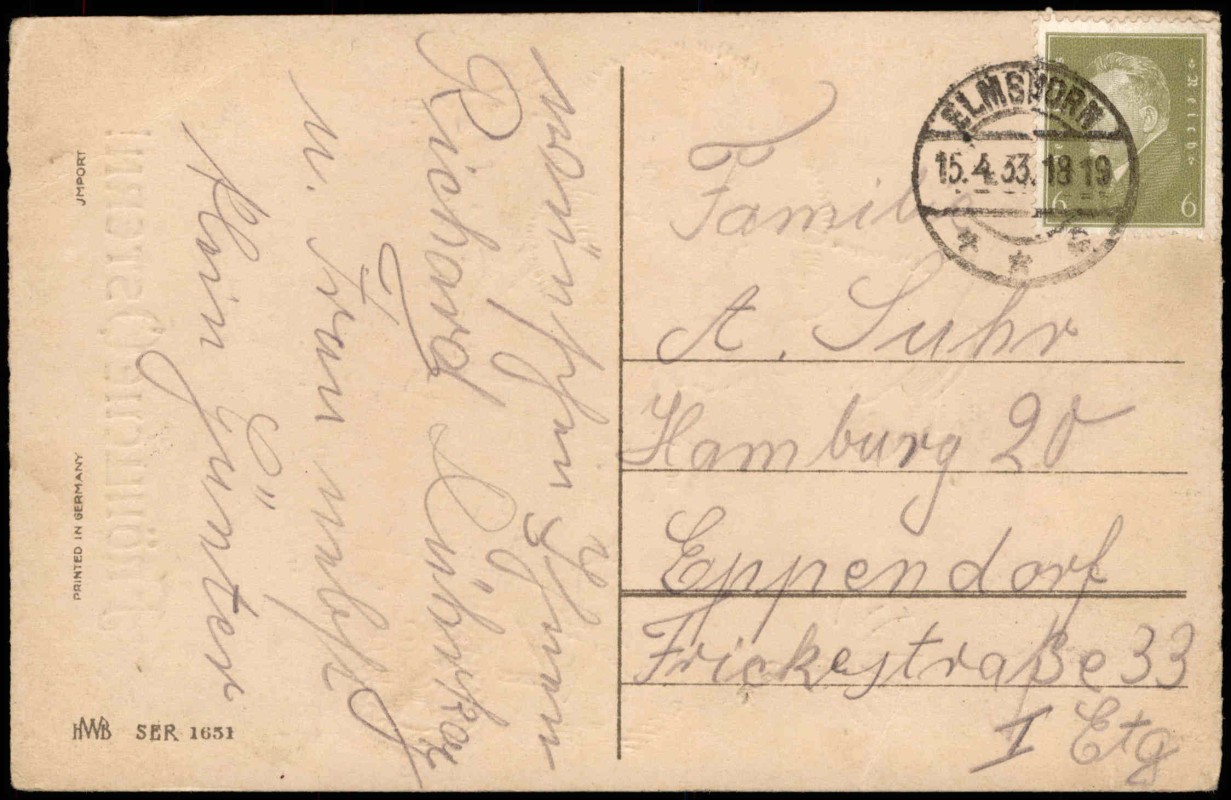 wünschen Ihnen
Richard Lühring
u. Frau nebst
Klein Günter
JMPORT
PRINTED IN GERMANY
HWB SER 1651
ELMSHORN
15.4.33.18 19
6 6
Familie
A. Suhr
Hamburg 20
Eppendorf
Frickestraße 33
I Etg